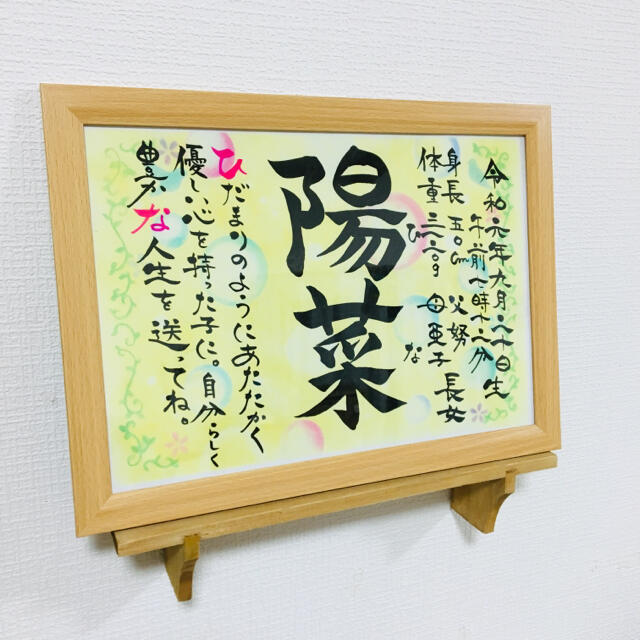 令和元年九月二十日生
午前七時十二分
身長 五〇cm 父努 長女
体重 三一二〇g 母亜子
陽菜
ひな
ひだまりのようにあたたかく
優しい心を持った子に。自分らしく
豊かな人生を送ってね。